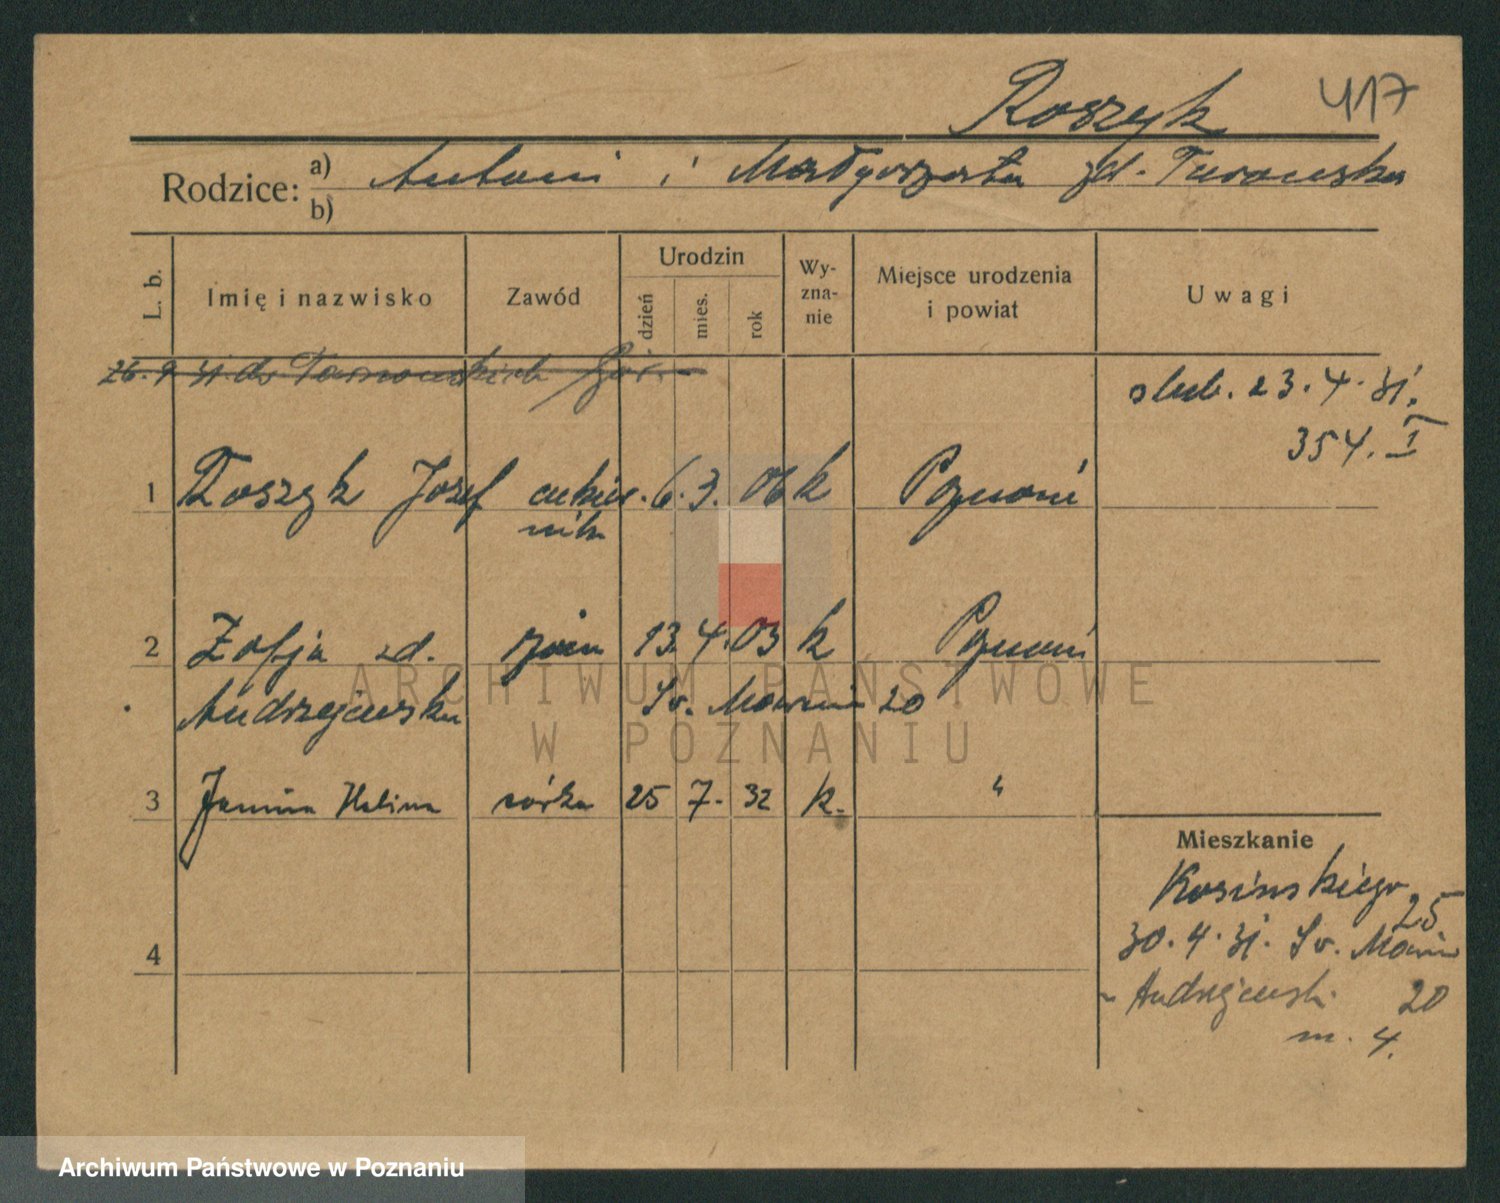 Roszyk 417
Rodzice: a) Antoni i Małgorzata zd. Turowska
b)
L. b. Imię i nazwisko Zawód Urodzin dzień mies. rok Wyzna-nie Miejsce urodzenia i powiat Uwagi
26. 9 31 do Tarnowskich Gór.
ślub. 23. 4. 31.
354. I
1 Roszyk Józef cukier- 6. 3. 06 k Poznań
nik
2 Zofja zd. żona 13. 4. 03 k Poznań
Andrzejewska Św. Marcin 20
3 Janina Halina córka 25 7. 32 k. "
Mieszkanie
Kosińskiego 25
4
30. 4. 31. Św. Marcin 20
Andrzejewsk.
m. 4.
ARCHIWUM PAŃSTWOWE
W POZNANIU
Archiwum Państwowe w Poznaniu